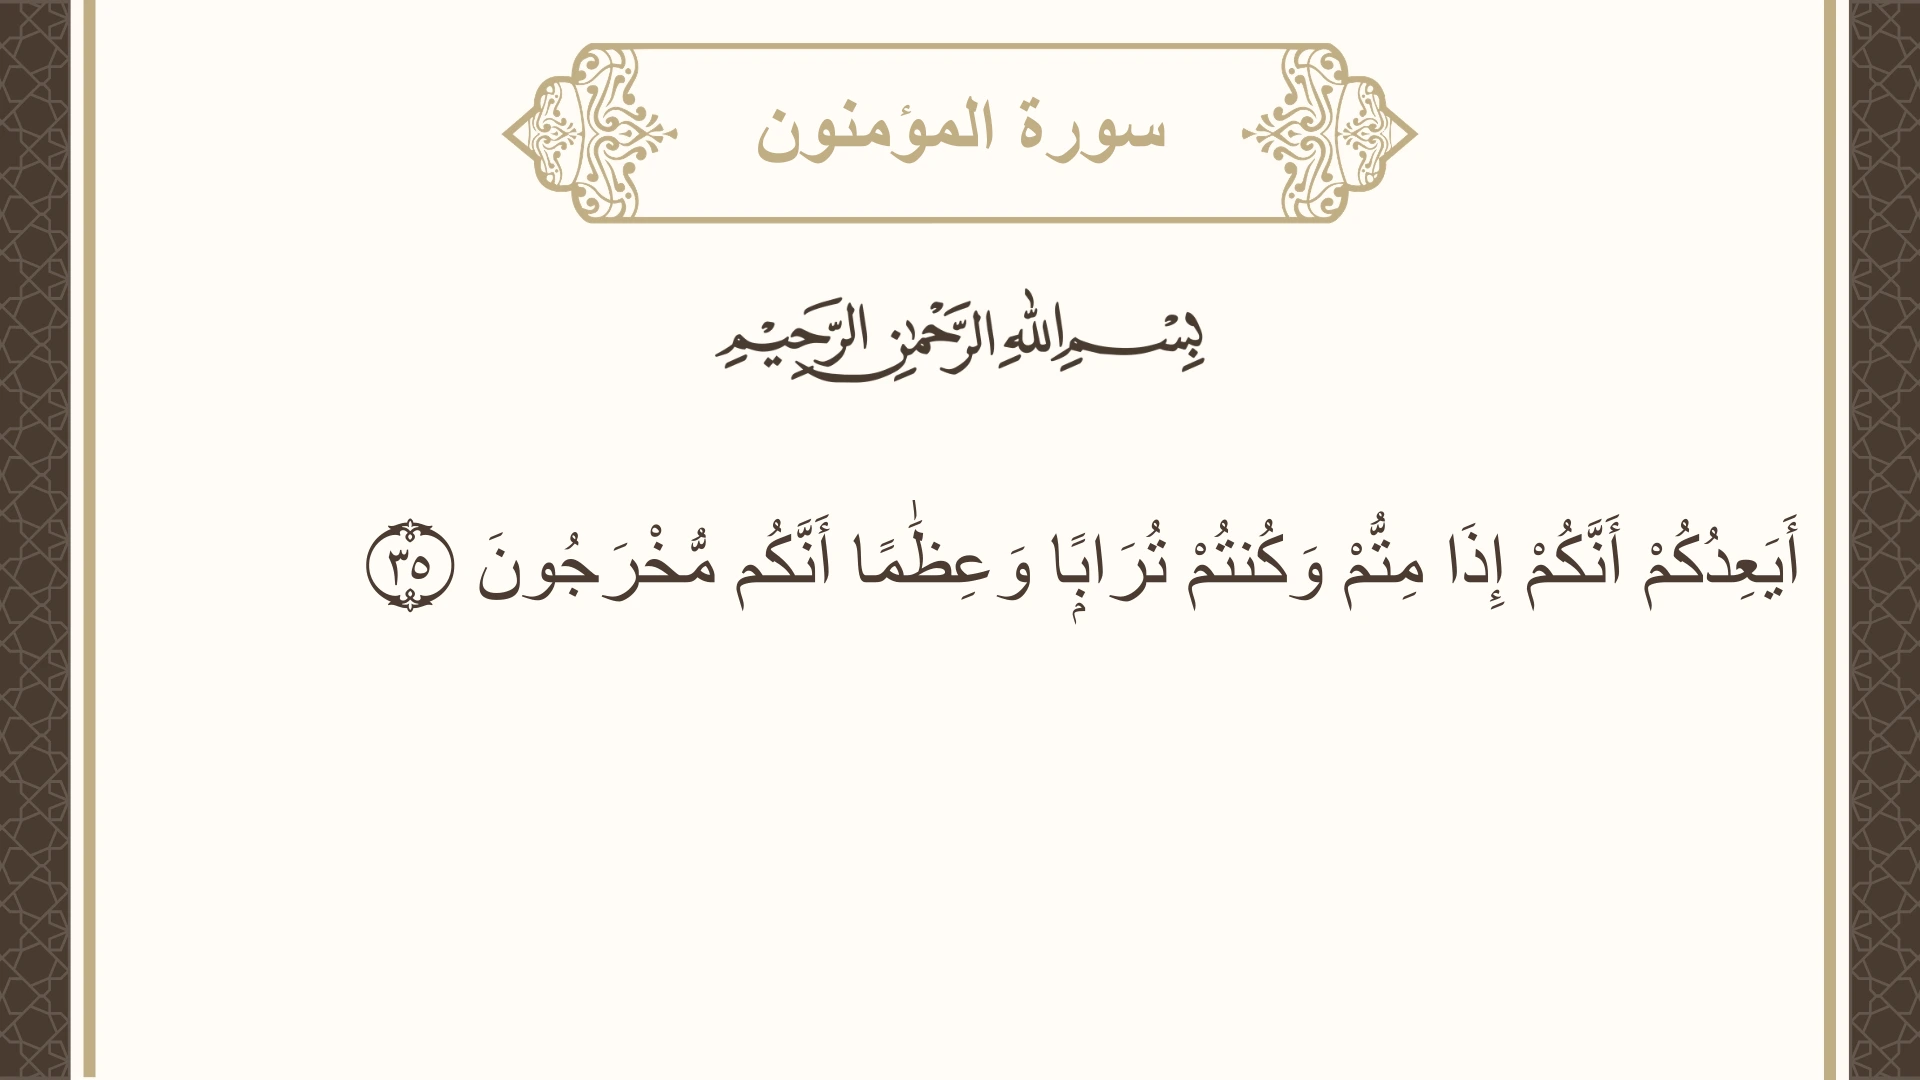 سورة المؤمنون
بِسْمِ اللهِ الرَّحْمٰنِ الرَّحِيْمِ
أَيَعِدُكُمْ أَنَّكُمْ إِذَا مِتُّمْ وَكُنتُمْ تُرَابࣰۭا وَعِظَٰمًا أَنَّكُم مُّخْرَجُونَ ٣٥